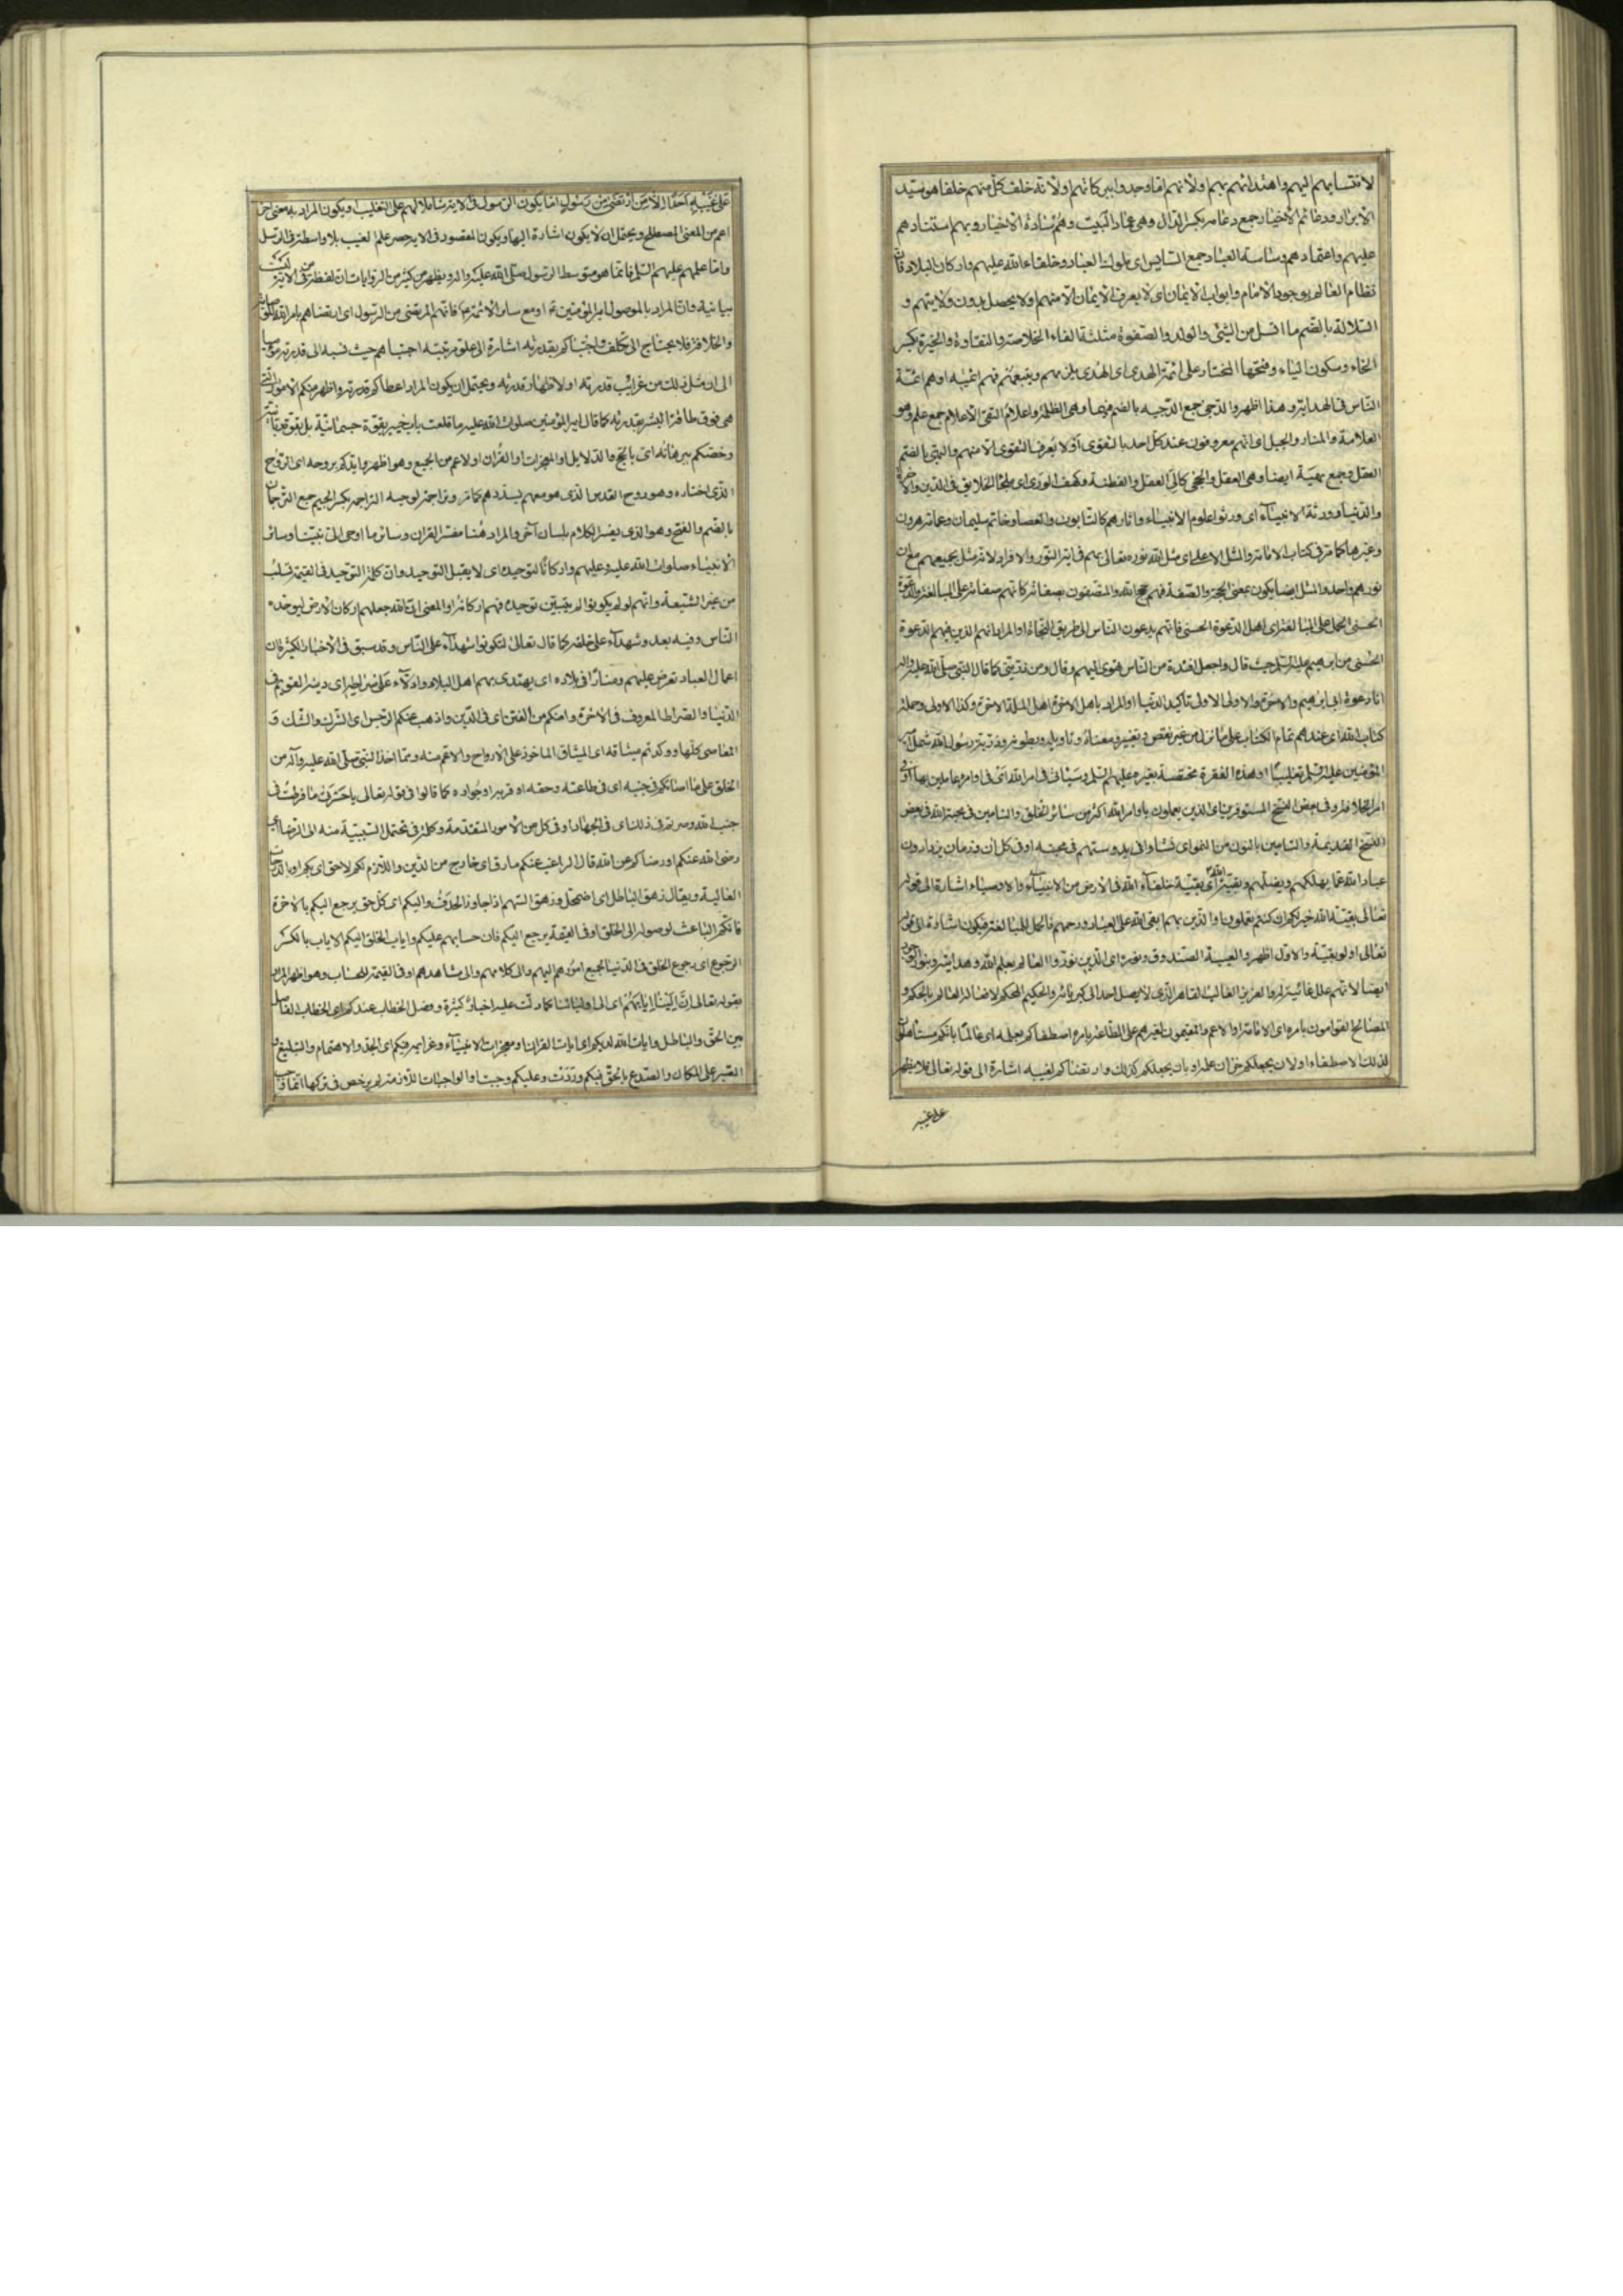 لانتسابهم اليهم واهتدائهم بهم اولانهم اتقا وجدوا ببركاتهم اولانه خلف كل منهم خلفا هو سيد
الابرار ودعائم الاخيار جمع دعامه بكسر الدال وهى عماد البيت وهم سادة الاخيار وبهم استنادهم
عليهم واعتمادهم وساسة العباد جمع السايس اى ملوك العباد وخلفاء الله عليهم واركان البلاد فان
نظام العالم بوجود الامام وابواب الايمان اى لا يعرف الايمان الا منهم ولا يحصل بدون ولايتهم و
السلالة بالضم ما انسل من الشئ والولد والصفوة مثلثة الفاء الخلاصة والنقاوة والخيرة بكسر
الخاء وسكون الياء وفتحها المختار على ائمة الهدى اى الهدى يلزمهم ويتبعهم فهم ائمته او هم ائمة
الناس فى الهداية وهذا اظهر والدجى جمع الدجيه بالضم فيهما وهى الظلمة واعلام التقى الاعلام جمع علم وهو
العلامة والمنار والجبل اى انهم معروفون عند كل احد بالتقوى او لا يعرف التقوى الا منهم والنهى بالضم
العقل وجمع نهية ايضا وهى العقل والحجى كالى العقل والفطنة وكهف الورى اى ملجأ الخلايق فى الدين والاخرة
والدنيا وورثة الانبياء اى ورثوا علوم الانبياء واثارهم كالتابوت والعصا وخاتم سليمان وعمامة هرون
وغيرها كما مر فى كتاب الامامة والمثل الاعلى اى مثل الله نوره تعالى بهم فى اية النور والافراد لانه مثل بجميعهم مع ان
نورهم واحد والمثل ايضا يكون بمعنى الحجة والصفة فهم حجج الله والمتصفون بصفاته كانهم صفاته على المبالغة والدعوة
الحسنى الحمل على المبالغة اى اهل الدعوة الحسنى فانهم يدعون الناس الى طريق النجاة او المراد انهم الذين فيهم الدعوة
الحسنى من ابرهيم عليه السلم حيث قال واجعل افئدة من الناس تهوى اليهم وقال ومن ذريتى كما قال النبى صلى الله عليه واله
انا دعوة ابى ابرهيم والاخرة والاولى الاولى تأكيد الدنيا او المراد باهل الاخرة اهل الملة الاخرة وكذا الاولى وحملة
كتاب الله اى عندهم تمام الكتاب على ما نزل من غير نقص وتغيير ومعناه وتاويله وبطونه وذرية رسول الله شمل امير
المؤمنين عليه السلم تغليبا او هذه الفقرة مختصة بغيره عليهم السلم وسيأتى فى امر الله اى فى اوامره عاملين بها او فى
امر الخلافة وفى بعض النسخ المستوفرين اى الذين يعملون باوامر الله اكثر من سائر الخلق والتامين فى محبة الله فى بعض
النسخ القديمة والنامين بالنون من النمو اى نشاوا فى بدو سنهم فى محبته او فى كل ان وزمان يزدادون
عباد الله عما يهلكهم ويضلهم وبقية الله اى بقية خلفاء الله فى الارض من الانبياء والاوصياء اشارة الى قوله
تعالى بقية الله خير لكم ان كنتم تعلمون او الذين بهم ابقى الله على العباد ورحمهم فالحمل للمبالغة فيكون اشارة الى قوله
تعالى اولو بقية والاول اظهر والعيبة الصندوق ونوره اى الذين نوروا العالم بعلم الله وهدايته وبنور الوجود
ايضا لانهم علل غائية له والعزيز الغالب القاهر الذى لا يصل احد الى كبريائه والحكيم المحكم لافعاله العالم بالحكم و
المصالح القوامون بامره اى الامامة او الاعم والمقيمون لغيرهم على الطاعة بامره اصطفاكم بعلمه اى عالما بانكم مستاهلون
لذلك الاصطفاء او لان يجعلكم خزان علمه او بان يجعلكم كذلك وارتضاكم لغيبه اشارة الى قوله تعالى فلا يظهر
على غيبه
على غيبه احدا الا من ارتضى من رسول اما يكون الرسول فى الاية شاملا لهم على التغليب او يكون المراد به معنى اخر
اعم من المعنى المصطلح ويحتمل ان لا يكون اشارة اليها ويكون المقصود فى الاية حصر علم الغيب بلا واسطة فى الرسل
واما علمهم عليهم السلم فانما هو متوسط الرسول صلى الله عليه واله ويظهر من كثير من الروايات ان لفظة من فى الاية ليست
بيانية وان المراد بالموصول امير المؤمنين ع او مع سائر الائمة ع فانهم المرتضى من الرسول اى ارتضاهم بامر الله للوصاية
والخلافة فلا يحتاج الى تكلف واجتباكم بقدرته اشارة الى علو مرتبة اجتباهم حيث نسبه الى قدرته موميا
الى ان مثل ذلك من غرائب قدرته او لاظهار قدرته ويحتمل ان يكون المراد اعطاكم قدرته واظهر منكم الامور التى
هى فوق طاقة البشر بقدرته كما قال امير المؤمنين صلوات الله عليه ما قلعت باب خيبر بقوة جسمانية بل بقوة ربانية
وخصكم ببرهانه اى بالحجج والدلايل او المعجزات او القران او لاعم من الجميع وهو اظهر وايدكم بروحه اى الروح
الذى اختاره وهو روح القدس الذى هو معهم يسددهم كما مر وتراجمة لوحيه التراجمه بكسر الجيم جمع الترجمان
بالضم والفتح وهو الذى يفسر الكلام بلسان آخر والمراد هنا مفسر القران وسائر ما اوحى الى نبينا وسائر
الانبياء صلوات الله عليه وعليهم واركانا لتوحيده اى لا يقبل التوحيد وان كلمة التوحيد فى القيمة تسلب
من غير الشيعة وانهم لو لم يكونوا لم يتبين توحيده فهم اركانه او المعنى ان الله جعلهم اركان الارض ليوحده
الناس وفيه بعد وشهداء على خلقه كما قال تعالى لتكونوا شهداء على الناس وقد سبق فى الاخبار الكثيرة ان
اعمال العباد تعرض عليهم ومنارا فى بلاده اى يهتدى بهم اهل البلاد وادلاء على صراطه اى دينه القويم فى
الدنيا والصراط المعروف فى الاخرة وامنكم من الفتن اى فى الدين واذهب عنكم الرجس اى الشرك والشك و
المعاصى كلها ووكدتم ميثاقه اى الميثاق الماخوذ على الارواح والاعم منه ومما اخذ النبى صلى الله عليه وآله من
الخلق على ما اصابكم فى جنبه اى فى طاعته وحقه او قربه او جواره كما قالوا فى قوله تعالى يا حسرتى على ما فرطت فى
جنب الله وصرتم فى ذلك اى فى الجهاد او فى كل من الامور المتقدمة وكلمة فى تحتمل السببية منه الى الرضا اى
رضى الله عنكم او رضاكم عن الله قال الراغب عنكم مارق اى خارج من الدين واللازم لكم لاحق اى بكم او بالدرجات
العالية ويقال زهق الباطل اى اضمحل وزهق السهم اذا جاوز الهدف واليكم اى كل حق يرجع اليكم بالاخرة
فانكم الباعث لوصوله الى الخلق او فى القيمة يرجع اليكم فان حسابهم عليكم واياب الخلق اليكم الاياب بالكسر
الرجوع اى رجوع الخلق فى الدنيا لجميع امورهم اليهم والى كلامهم والى مشاهدهم او فى القيمة للحساب وهو اظهر فالمراد
بقوله تعالى ان الينا ايابهم اى الى اوليائنا كما دلت عليه اخبار كثيرة وفصل الخطاب عندكم اى الخطاب الفاصل
بين الحق والباطل وايات الله لديكم اى ايات القران او معجزات الانبياء وعزايمه فيكم اى الجد والاهتمام والتبليغ و
الصبر على المكاره والصدع بالحق فيكم وردت وعليكم وجبت او الواجبات اللازمة لم يرخص فى تركها انما وجب